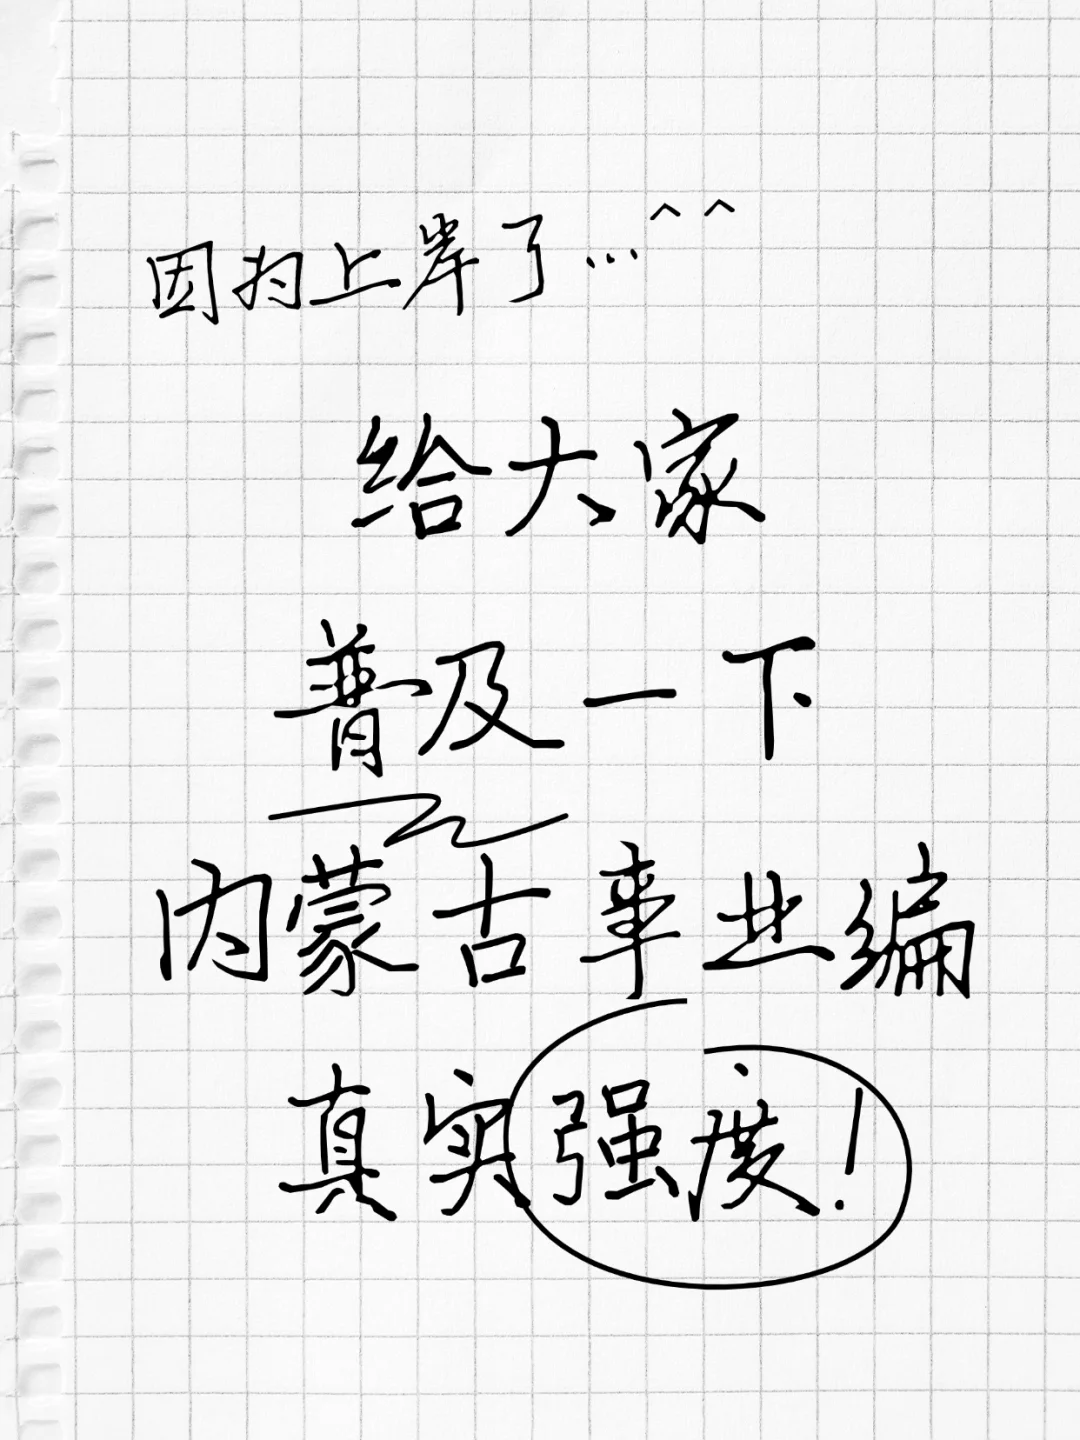 因为上岸了...^^
给大家
普及一下
内蒙古事业编
真实强度!